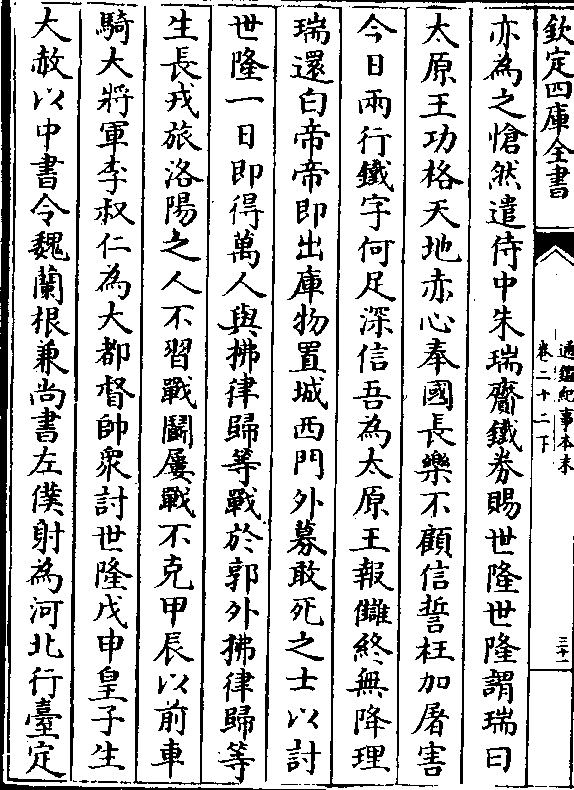 欽定四庫全書
通鑑紀事本末
卷二十二下
三十一
亦為之愴然遣侍中朱瑞齎鐵券賜世隆世隆謂瑞曰
太原王功格天地赤心奉國長樂不顧信誓枉加屠害
今日兩行鐵字何足深信吾為太原王報讎終無降理
瑞還白帝帝即出庫物置城西門外募敢死之士以討
世隆一日即得萬人與拂律歸等戰於郭外拂律歸等
生長戎旅洛陽之人不習戰鬭屢戰不克甲辰以前車
騎大將軍李叔仁為大都督帥衆討世隆戊申皇子生
大赦以中書令魏蘭根兼尚書左僕射為河北行臺定